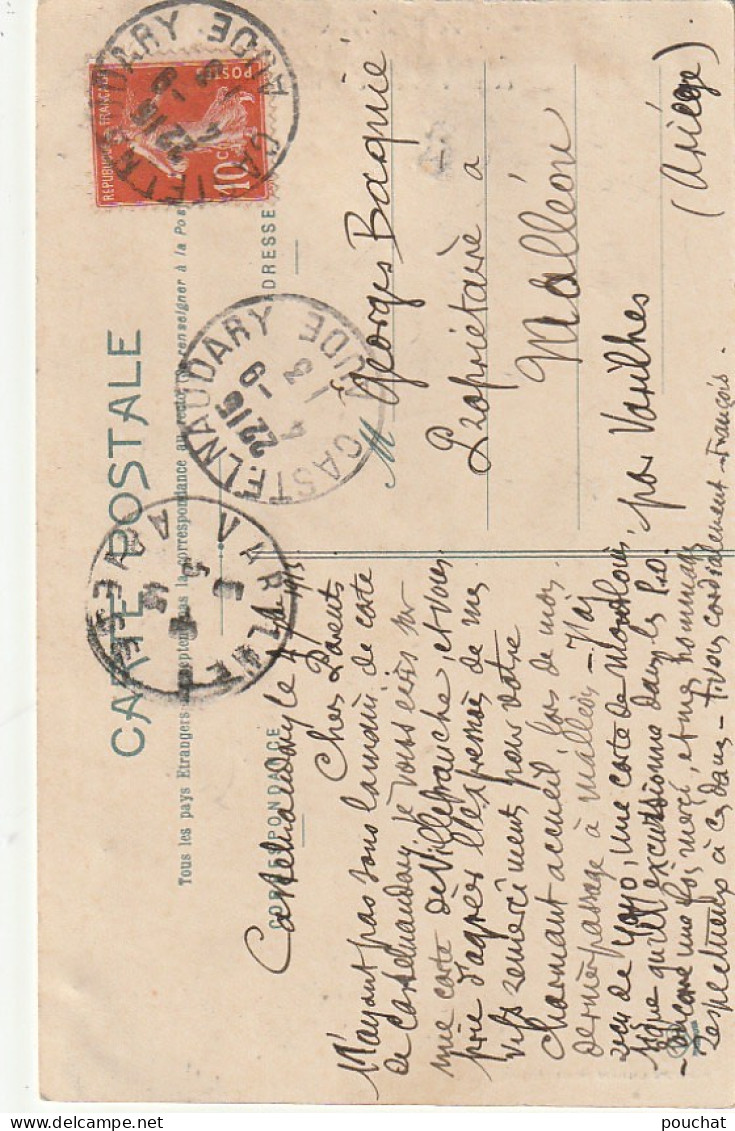 CARTE POSTALE
Tous les pays Etrangers acceptent pas la correspondance au recto. renseigner à la Pos
CORRESPONDANCE
ADRESSE
REPUBLIQUE FRANÇAISE
POSTES
10 C
CASTELNAUDARY AUDE
22 15
4 - 9
13
CASTELNAUDARY AUDE
22 15
4 - 9
13
VARILHES
Castelnaudary le 4 1913
Chers Parents
N'ayant pas sous la main de carte
de Castelnaudary je vous écris sur
une carte de Villefranche, et vous
prie d'agréer l'expression de mes
vifs remerciments pour votre
charmant accueil, lors de mon
dernier passage à Malléon - J'ai
reçu de Yoyo, une carte de Montlouis,
signe qu'il excursionne dans les P.O.
- Encore une fois merci, et mes hommages
respectueux à ces dames - A vous cordialement - François -
M Georges Baquié
Propriétaire à
Malléon
par Varilhes
(Ariège)
pouchat